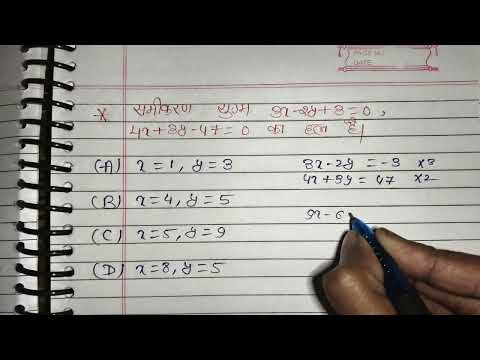 PAGE NO
DATE
* समीकरण युग्म 3x-2y+3=0,
4x+3y-47=0 का हल है।
(A) x=1, y=3
(B) x=4, y=5
(C) x=5, y=9
(D) x=8, y=5
3x-2y = -3 x3
4x+3y = 47 x2
9x-6